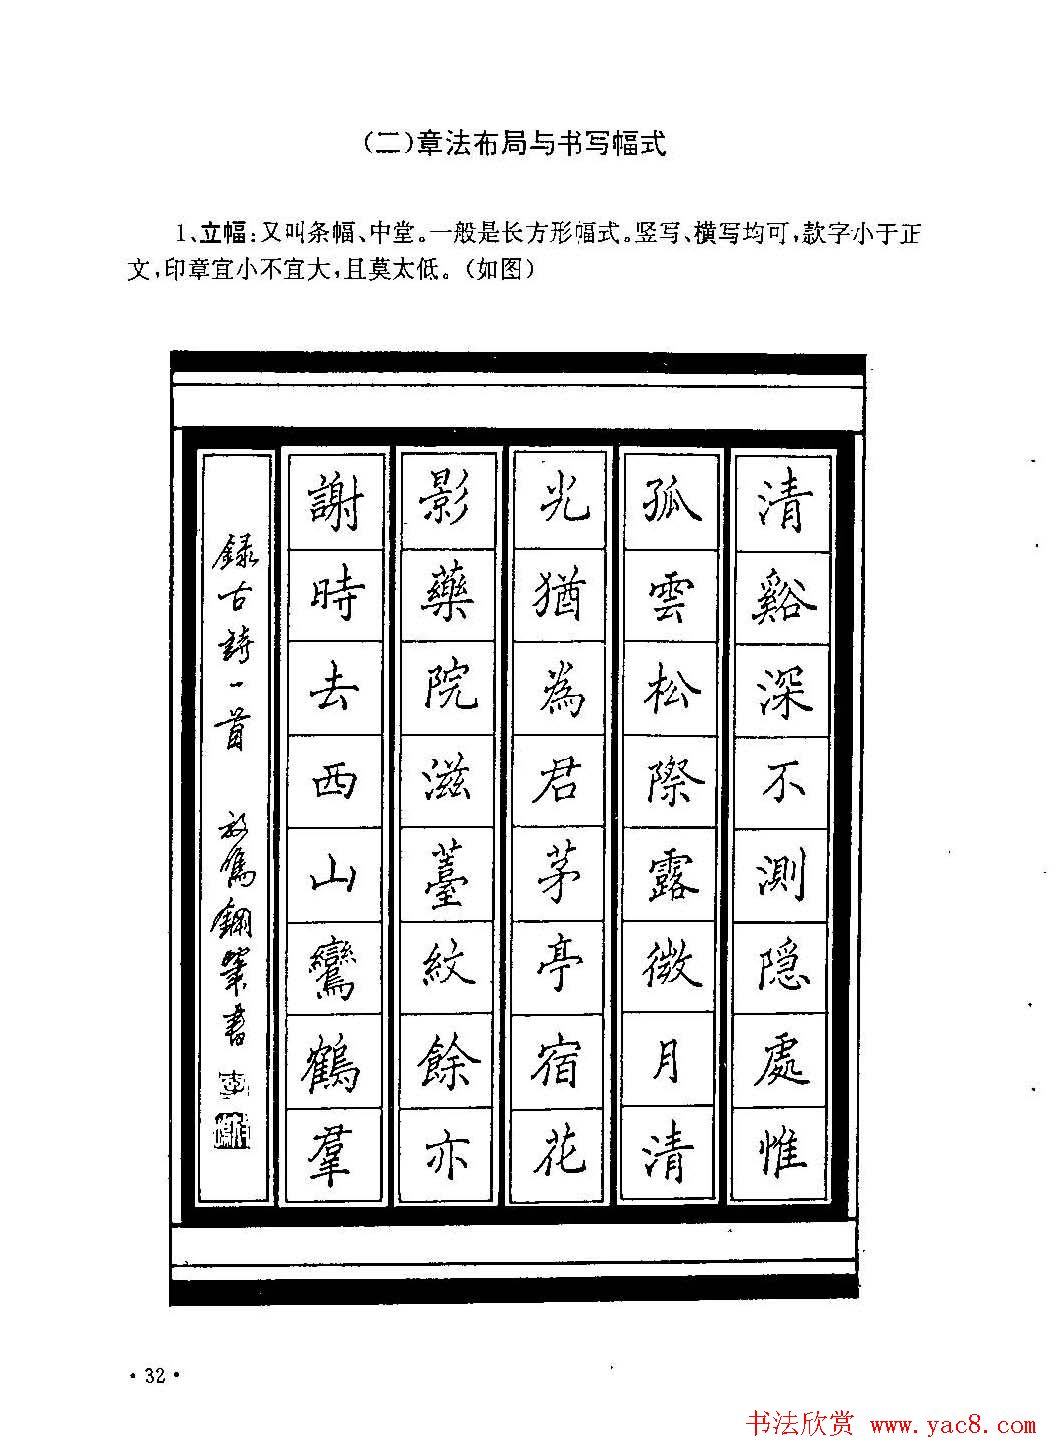 (二)章法布局与书写幅式
1、立幅:又叫条幅、中堂。一般是长方形幅式。竖写、横写均可,款字小于正
文,印章宜小不宜大,且莫太低。(如图)
清谿深不测隐處惟
孤雲松際露微月清
光猶為君茅亭宿花
影藥院滋薹紋餘亦
謝時去西山鸞鶴羣
録古詩一首 放雋鋼筆書
·32·
书法欣赏 www.yac8.com